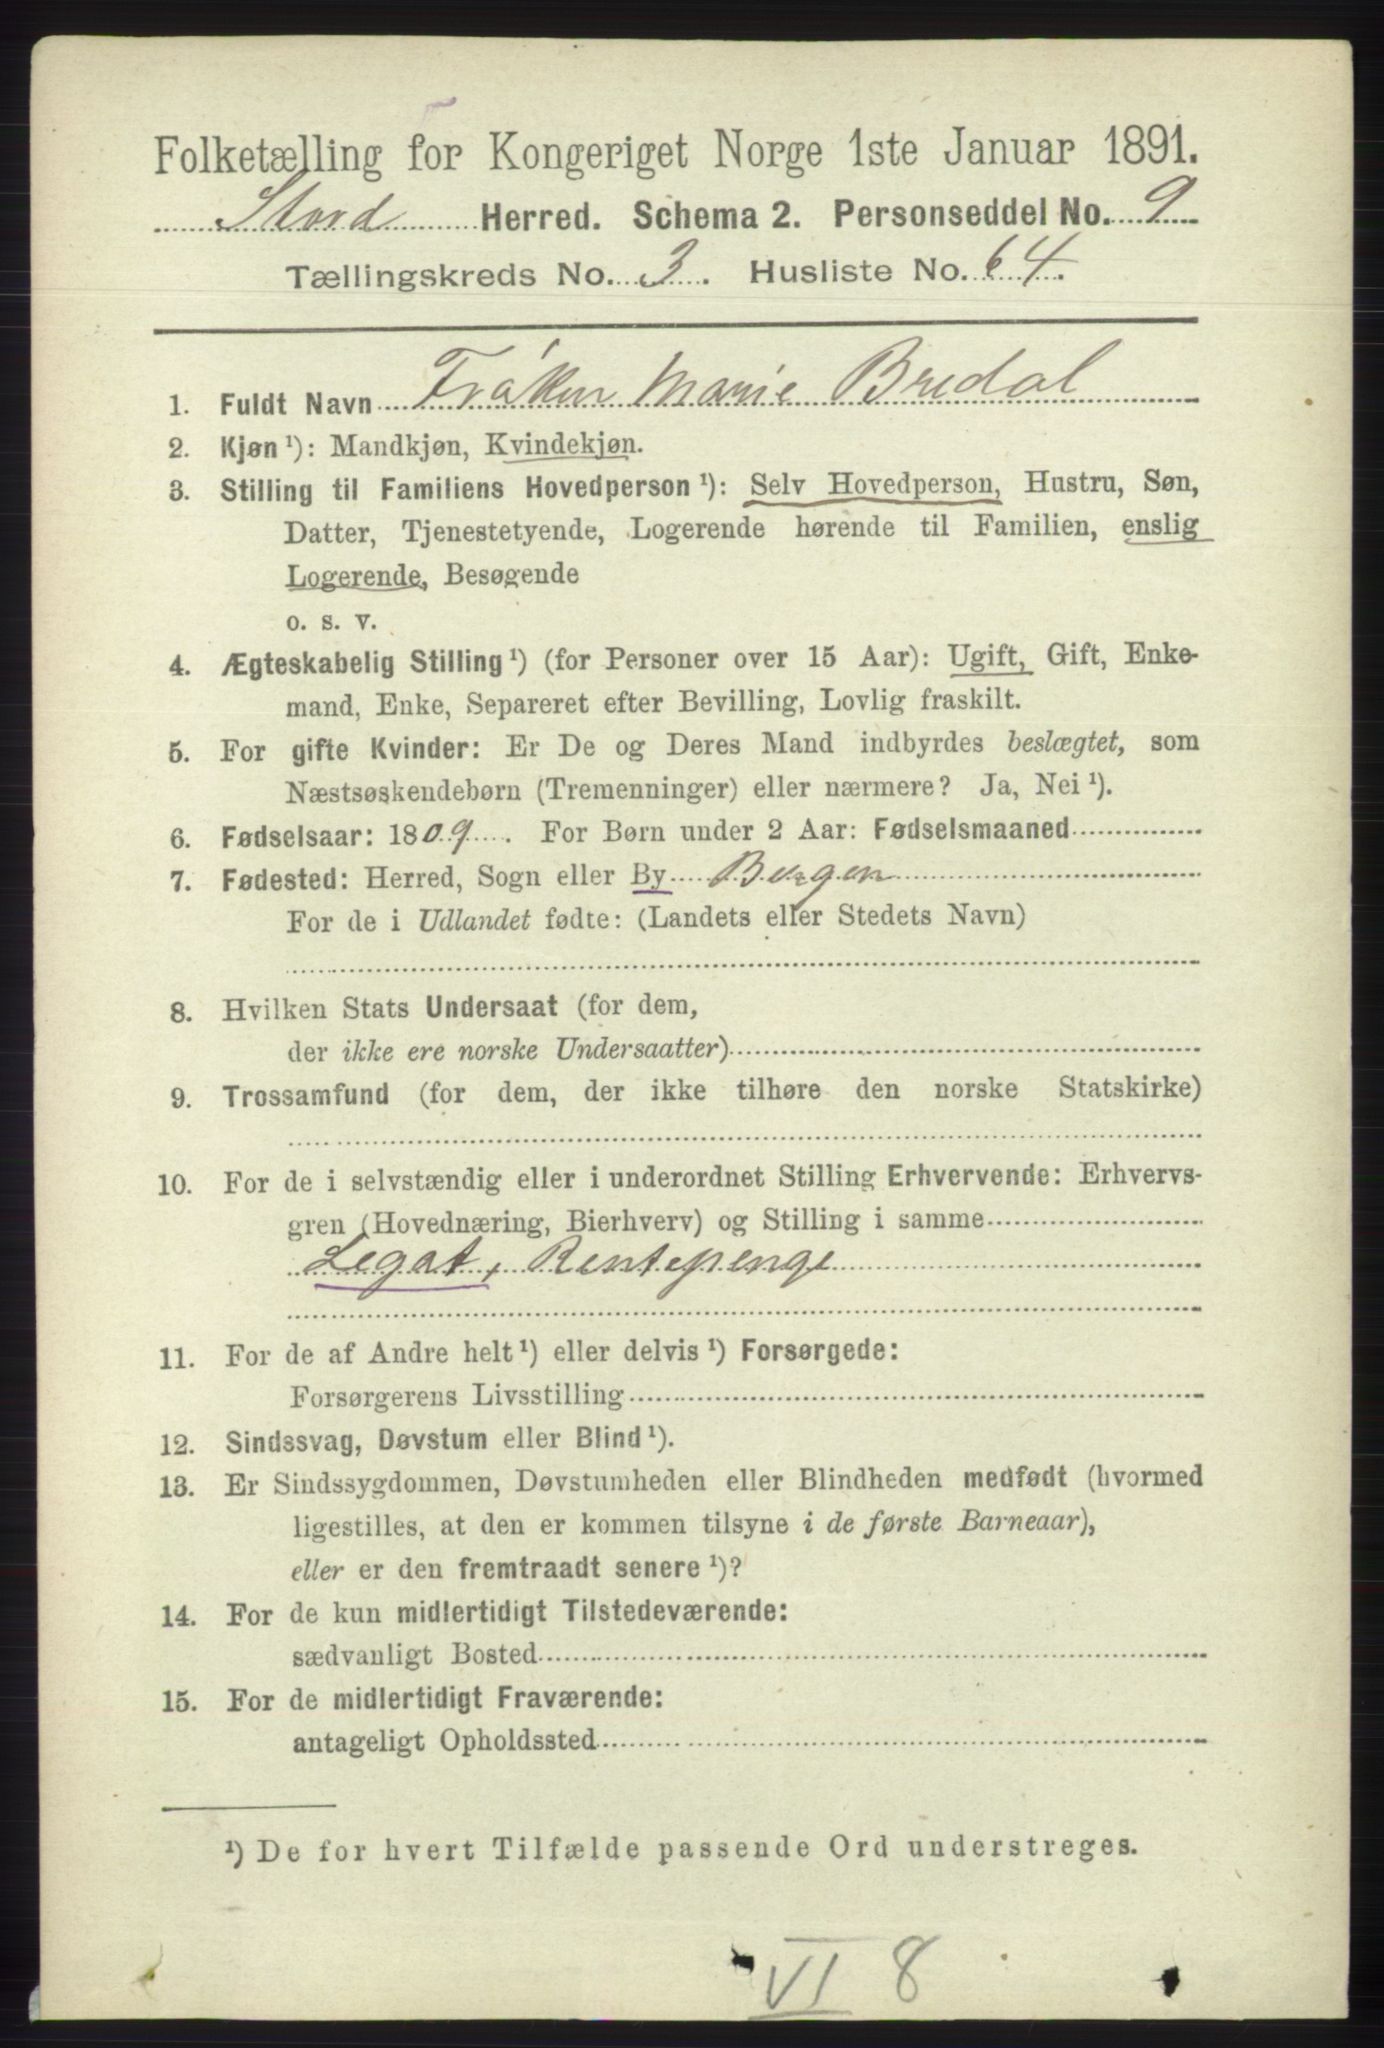 Folketælling for Kongeriget Norge 1ste Januar 1891.
Stord Herred. Schema 2. Personseddel No. 9
Tællingskreds No. 3. Husliste No. 64.
1. Fuldt Navn Frøken Marie Bredal
2. Kjøn ¹): Mandkjøn, Kvindekjøn.
3. Stilling til Familiens Hovedperson ¹): Selv Hovedperson, Hustru, Søn,
Datter, Tjenestetyende, Logerende hørende til Familien, enslig
Logerende, Besøgende
o. s. v.
4. Ægteskabelig Stilling ¹) (for Personer over 15 Aar): Ugift, Gift, Enke-
mand, Enke, Separeret efter Bevilling, Lovlig fraskilt.
5. For gifte Kvinder: Er De og Deres Mand indbyrdes beslægtet, som
Næstsøskendebørn (Tremenninger) eller nærmere? Ja, Nei ¹).
6. Fødselsaar: 1809. For Børn under 2 Aar: Fødselsmaaned
7. Fødested: Herred, Sogn eller By Bergen
For de i Udlandet fødte: (Landets eller Stedets Navn)
8. Hvilken Stats Undersaat (for dem,
der ikke ere norske Undersaatter)
9. Trossamfund (for dem, der ikke tilhøre den norske Statskirke)
10. For de i selvstændig eller i underordnet Stilling Erhvervende: Erhvervs-
gren (Hovednæring, Bierhverv) og Stilling i samme
Legat, Rentepenge
11. For de af Andre helt ¹) eller delvis ¹) Forsørgede:
Forsørgerens Livsstilling
12. Sindssvag, Døvstum eller Blind ¹).
13. Er Sindssygdommen, Døvstumheden eller Blindheden medfødt (hvormed
ligestilles, at den er kommen tilsyne i de første Barneaar),
eller er den fremtraadt senere ¹)?
14. For de kun midlertidigt Tilstedeværende:
sædvanligt Bosted
15. For de midlertidigt Fraværende:
antageligt Opholdssted
¹) De for hvert Tilfælde passende Ord understreges.
VI 8